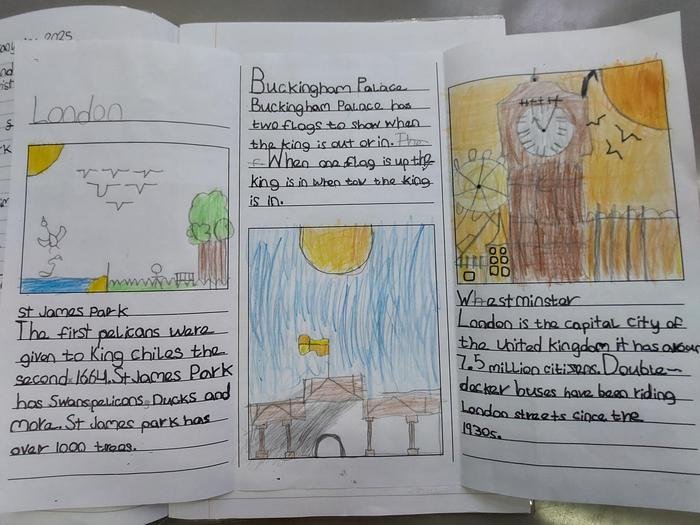 2025
London
St James Park
The first pelicans were
given to King Chiles the
second. 1664. St James Park
has Swanspelicons, Ducks and
more. St James park has
over 1000 trees.
Buckingham Palace
Buckingham Palace has
two flags to show when
the king is out or in. The
When one flag is up the
king is in when tow the king
is in.
Whestminster
London is the capital city of
the United kingdom it has
7.5 million citizens. Double-
decker buses have been riding
London streets since the
1930s.